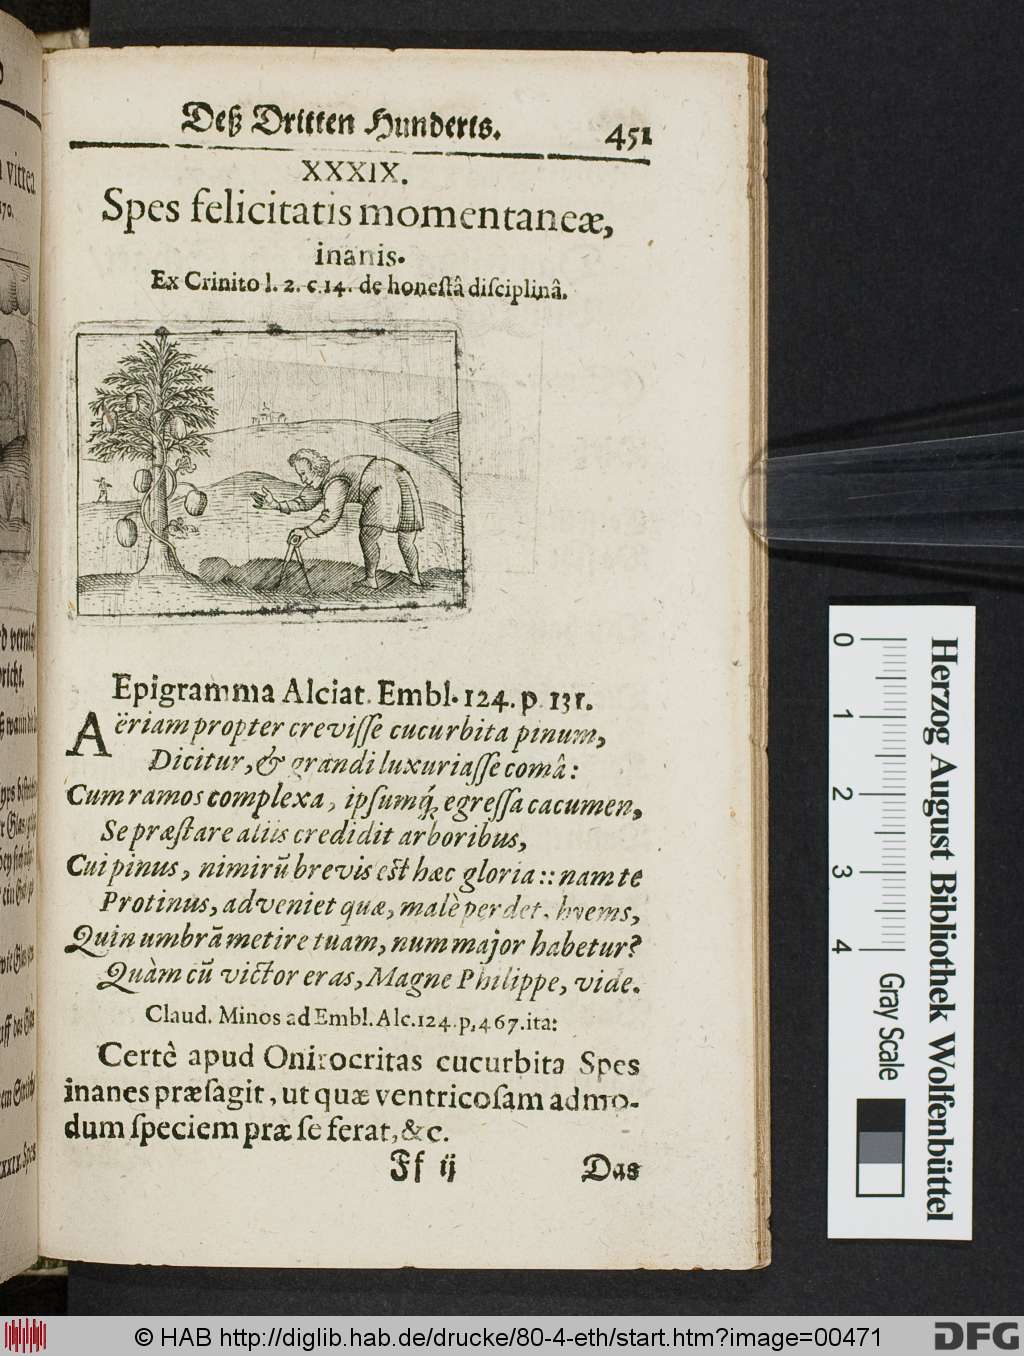 Deß Dritten Hunderts. 451
XXXIX.
Spes felicitatis momentaneæ,
inanis.
Ex Crinito l. 2. c. 14. de honestâ disciplinâ.
Epigramma Alciat. Embl. 124. p. 131.
Aëriam propter creviſſe cucurbita pinum,
Dicitur, & grandi luxuriaſſe comâ:
Cum ramos complexa, ipſumq́; egreſſa cacumen,
Se præſtare aliis credidit arboribus,
Cui pinus, nimirũ brevis eſt hæc gloria:: nam te
Protinus, adveniet quæ, malè perdet, hyems,
Quin umbrã metire tuam, num major habetur?
Quàm cũ victor eras, Magne Philippe, vide.
Claud. Minos ad Embl. Alc. 124. p. 467. ita:
Certè apud Onirocritas cucurbita Spes
inanes præſagit, ut quæ ventricoſam admo-
dum ſpeciem præ ſe ferat, &c.
Ff ij Das
vitrea
170.
XXXIX. Spes
0 1 2 3 4
Herzog August Bibliothek Wolfenbüttel
Gray Scale
© HAB http://diglib.hab.de/drucke/80-4-eth/start.htm?image=00471
DFG